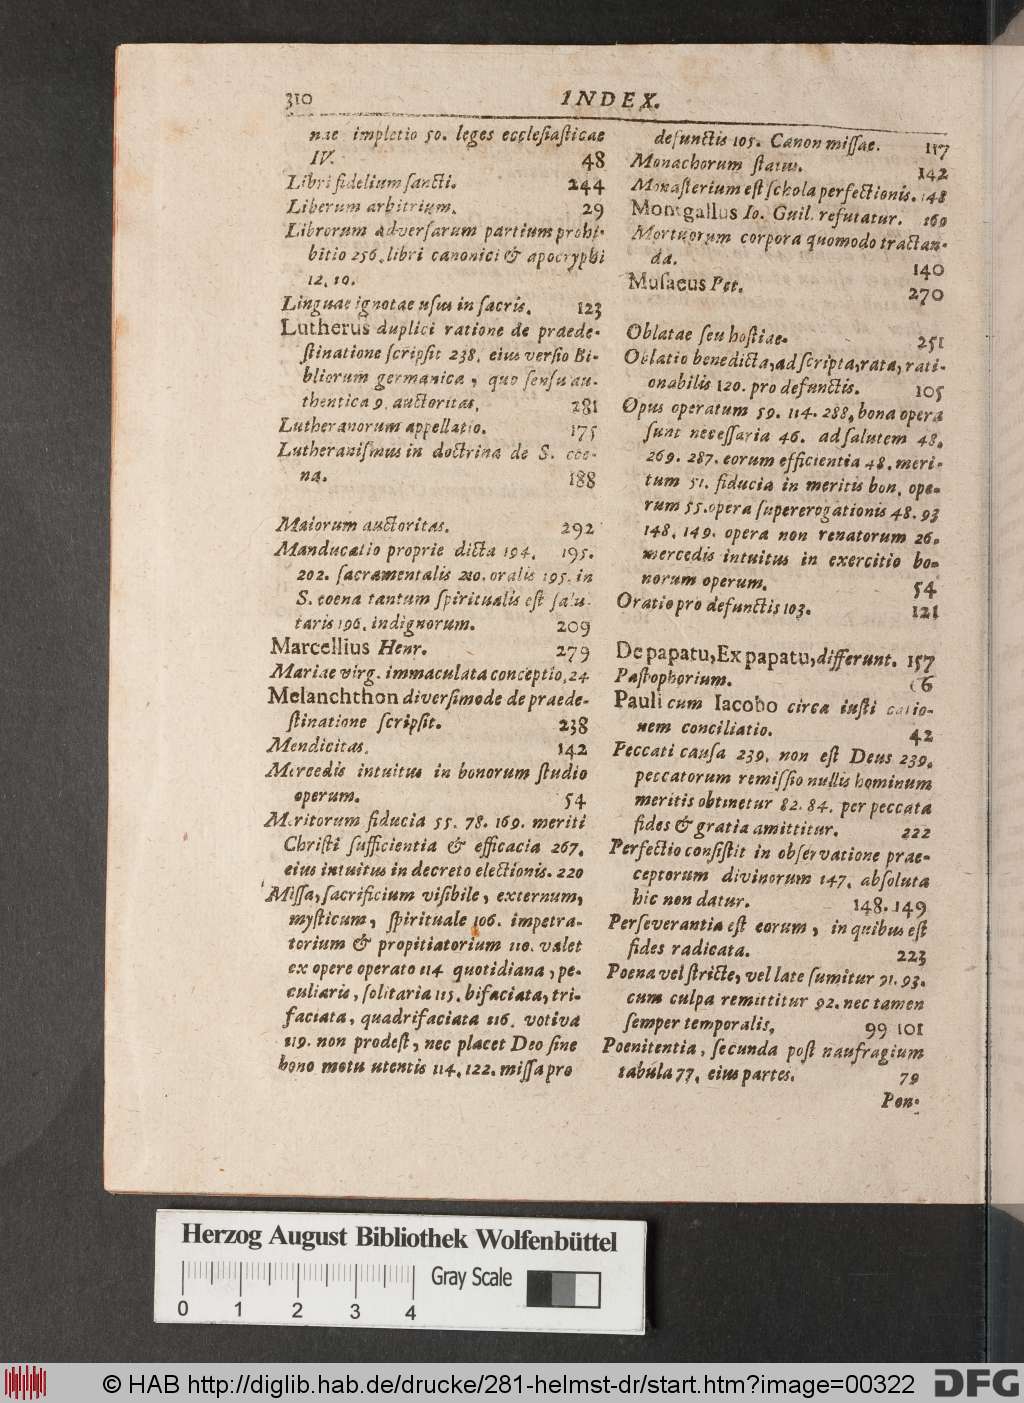 310 INDEX.
nae impletio 50. leges ecclesiasticae
IV. 48
Libri fidelium sancti. 244
Liberum arbitrium. 29
Librorum adversarum partium prohi-
bitio 256. libri canonici & apocryphi
12. 10.
Linguae ignotae usus in sacris. 123
Lutherus duplici ratione de praede-
stinatione scripsit 238. eius versio Bi-
bliorum germanica, quo sensu au-
thentica 9. auctoritas. 281
Lutheranorum appellatio. 175
Lutheranismus in doctrina de S. coe-
na. 188
Maiorum auctoritas. 292
Manducatio proprie dicta 194. 195.
202. sacramentalis 210. oralis 195. in
S. coena tantum spiritualis est salu-
taris 196. indignorum. 209
Marcellius Henr. 279
Mariae virg. immaculata conceptio. 24
Melanchthon diversimode de praede-
stinatione scripsit. 238
Mendicitas. 142
Mercedis intuitus in bonorum studio
operum. 54
Meritorum fiducia 55. 78. 169. meriti
Christi sufficientia & efficacia 267.
eius intuitus in decreto electionis. 220
Missa, sacrificium visibile, externum,
mysticum, spirituale 106. impetra-
torium & propitiatorium 110. valet
ex opere operato 114 quotidiana, pe-
culiaris, solitaria 115. bifaciata, tri-
faciata, quadrifaciata 116. votiva
119. non prodest, nec placet Deo sine
bono motu utentis 114. 122. missa pro
defunctis 105. Canon missae. 117
Monachorum status. 142
Monasterium est schola perfectionis. 148
Montgallus Io. Guil. refutatur. 160
Mortuorum corpora quomodo tractan-
da. 140
Musaeus Pet. 270
Oblatae seu hostiae. 251
Oblatio benedicta, adscripta, rata, rati-
onabilis 120. pro defunctis. 105
Opus operatum 59. 114. 288. bona opera
sunt necessaria 46. ad salutem 48.
269. 287. eorum efficientia 48. meri-
tum 51. fiducia in meritis bon. ope-
rum 55. opera supererogationis 48. 93
148. 149. opera non renatorum 26.
mercedis intuitus in exercitio bo-
norum operum. 54
Oratio pro defunctis 103. 121
De papatu, Ex papatu, differunt. 157
Pastophorium. 66
Pauli cum Iacobo circa iustificatio-
nem conciliatio. 42
Peccati causa 239. non est Deus 239.
peccatorum remissio nullis hominum
meritis obtinetur 82. 84. per peccata
fides & gratia amittitur. 222
Perfectio consistit in observatione prae-
ceptorum divinorum 147. absoluta
hic non datur. 148. 149
Perseverantia est eorum, in quibus est
fides radicata. 223
Poena vel stricte, vel late sumitur 91. 93.
cum culpa remittitur 92. nec tamen
semper temporalis. 99 101
Poenitentia, secunda post naufragium
tabula 77. eius partes. 79
Pon-
Herzog August Bibliothek Wolfenbüttel
Gray Scale
0 1 2 3 4
© HAB http://diglib.hab.de/drucke/281-helmst-dr/start.htm?image=00322
DFG